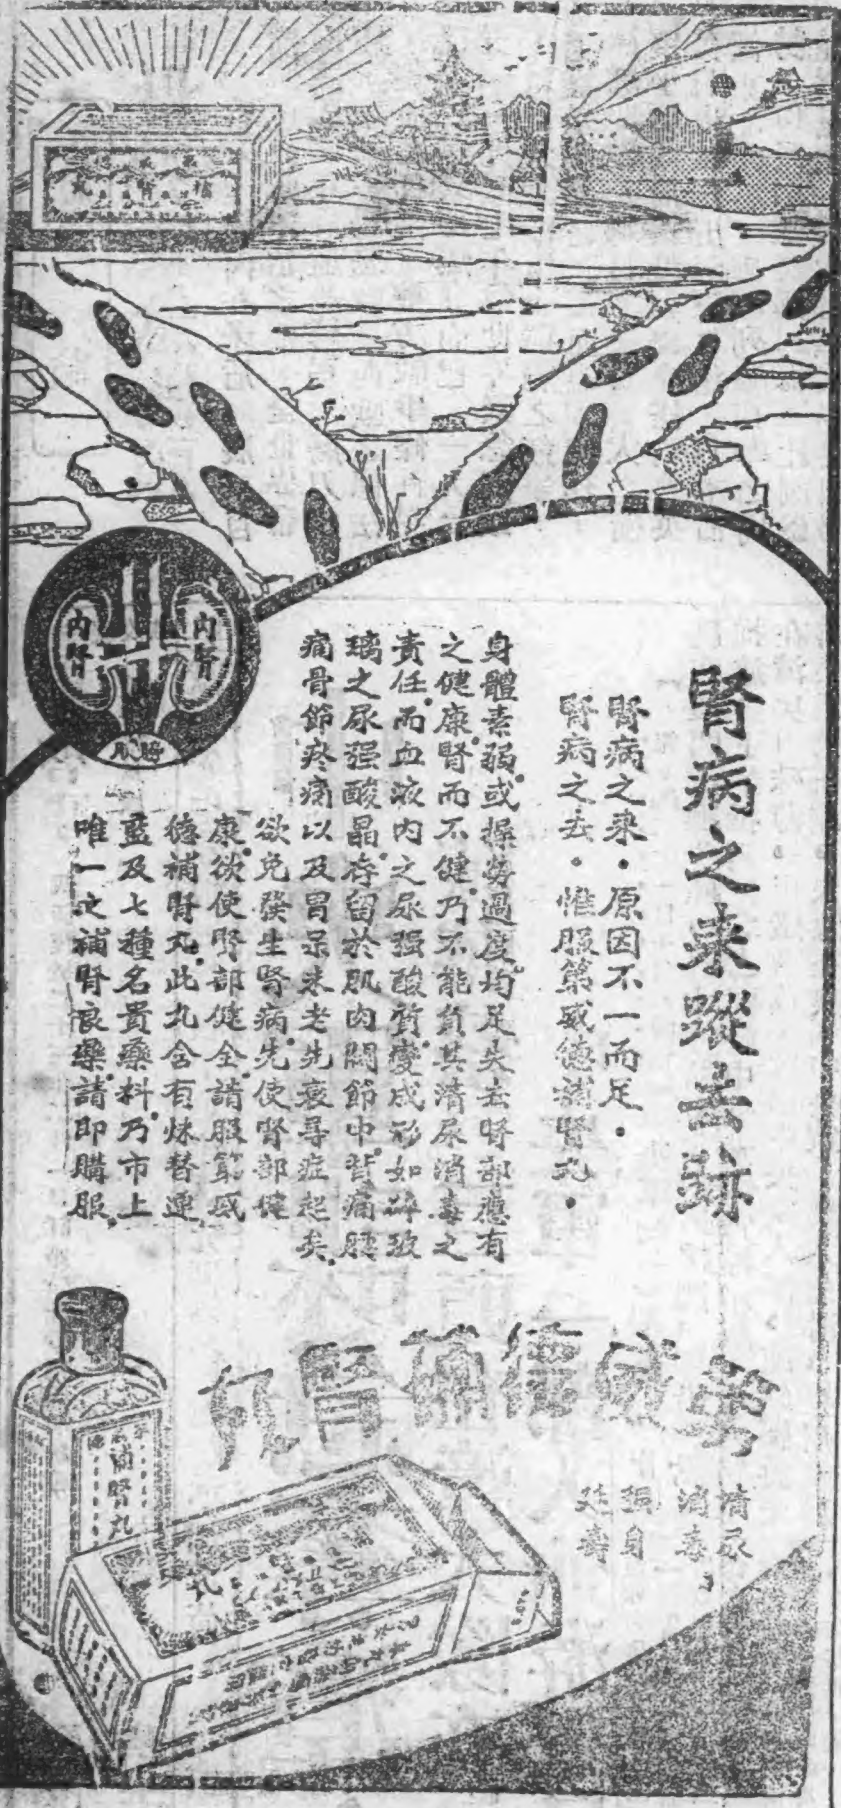 腎病之来蹤去跡
腎病之来·原因不一而足·
腎病之去·惟服第威德補腎丸·
身體素弱或操勞過度均足失去腎部應有
之健康腎而不健乃不能負其濟尿消毒之
責任而血液內之尿强酸質變成形如碎玻
璃之尿强酸晶存留於肌肉關節中背痛腰
痛骨節疼痛以及冒呆未老先衰等症起矣
欲免發生腎病先使腎部健
康欲使腎部健全請服第威
德補腎丸此丸含有妹替連
藍及七種名貴藥料乃市上
唯一之補腎良藥請即購服
內腎
內腎
膀胱
第威德補腎丸
清尿
消毒
强身
延壽
補腎丸